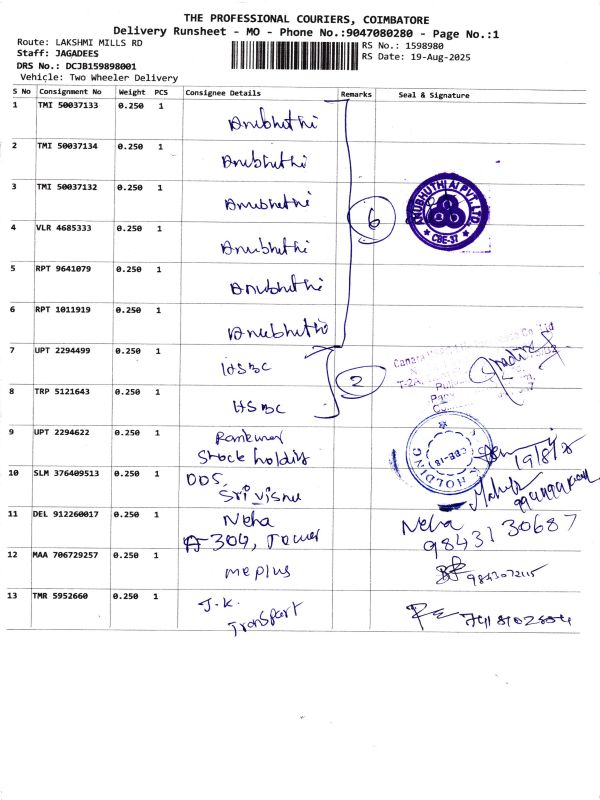 THE PROFESSIONAL COURIERS, COIMBATORE
Delivery Runsheet - MO - Phone No.:9047080280 - Page No.:1
Route: LAKSHMI MILLS RD
RS No.: 1598980
Staff: JAGADEES
RS Date: 19-Aug-2025
DRS No.: DCJB159898001
Vehicle: Two Wheeler Delivery
S No Consignment No Weight PCS Consignee Details Remarks Seal & Signature
1 TMI 50037133 0.250 1 Anubhuthi
2 TMI 50037134 0.250 1 Anubhuthi
3 TMI 50037132 0.250 1 Anubhuthi
6
ANUBHUTHI AI PVT. LTD.
CBE-37
4 VLR 4685333 0.250 1 Anubhuthi
5 RPT 9641079 0.250 1 Anubhuthi
6 RPT 1011919 0.250 1 Anubhuthi
7 UPT 2294499 0.250 1 HSBC
2
8 TRP 5121643 0.250 1 HSBC
9 UPT 2294622 0.250 1 Ramkumar
Stock holding
HOLDING
CBE-18
19/8/25
10 SLM 376409513 0.250 1 DDS,
Sri Vishnu
11 DEL 912260017 0.250 1 Neha
A-304, Tower
Neha
98431 30687
12 MAA 706729257 0.250 1 meplus
9843072115
13 TMR 5952660 0.250 1 J.K.
Transport